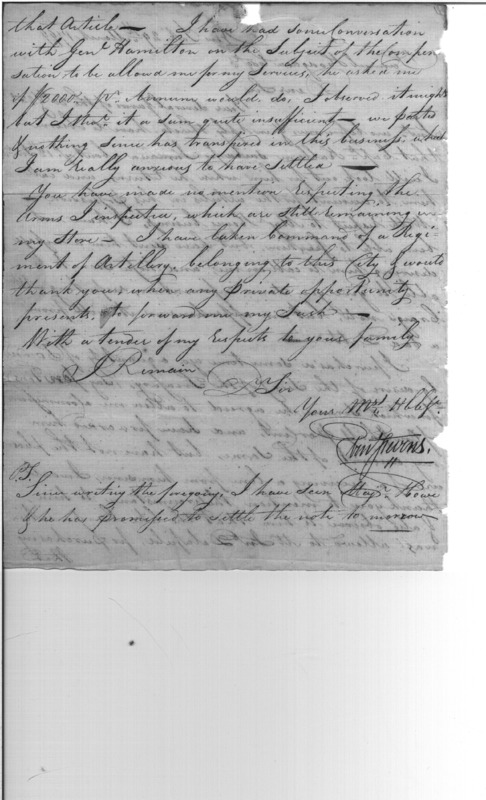 that Article — I have had some Conversation
with Genl Hamilton on the Subject of the Compen
sation to be allowed me for my Services, he asked me
if $2000. pr. Annum would do, I observed it might
but I thot. it a sum quite insufficient — we parted
& nothing since has transpired in this business, which
I am really anxious to have settled —
You have made no mention respecting the
Arms I inspected, which are still remaining in
my Store — I have taken Command of a Regi-
ment of Artillery, belonging to this City & would
thank you, when any private opportunity
presents, to forward me my Sash —
With a tender of my respects to your family
I Remain
Dr. Sir
Yours Mot. Hble St.
Eben Stevens.
P.S.
Since writing the foregoing, I have seen Majr. Howe
& he has promised to settle the note to morrow